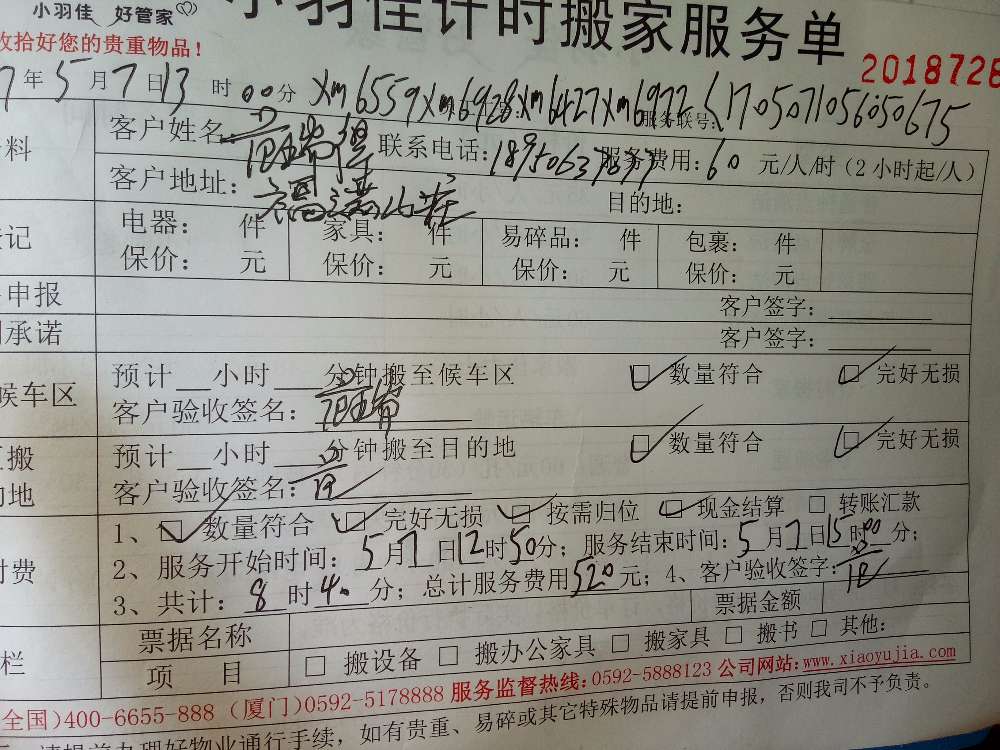 小羽佳 好管家
小羽佳计时搬家服务单
收拾好您的贵重物品！
2018728
7年5月7日13时00分 xm6559 xm6928 xm6427 xm6972 服务联号: 17050710560506 75
料 客户姓名: 联系电话: 服务费用: 60 元/人/时（2小时起/人）
客户地址: 目的地:
登记 电器: 件 家具: 件 易碎品: 件 包裹: 件
保价: 元 保价: 元 保价: 元 保价: 元
申报 客户签字:
承诺 客户签字:
候车区 预计 小时 分钟搬至候车区 数量符合 完好无损
客户验收签名:
搬 预计 小时 分钟搬至目的地 数量符合 完好无损
的地 客户验收签名:
1、 数量符合 完好无损 按需归位 现金结算 转账汇款
付费 2、服务开始时间: 5月7日12时50分; 服务结束时间: 5月7日15时00分;
3、共计: 8时40分; 总计服务费用520元; 4、客户验收签字:
栏 票据名称 票据金额
项 目 搬设备 搬办公家具 搬家具 搬书 其他:
全国)400-6655-888 (厦门)0592-5178888 服务监督热线:0592-5888123 公司网站:www.xiaoyujia.com
请提前办理好物业通行手续，如有贵重、易碎或其它特殊物品请提前申报，否则我司不予负责。